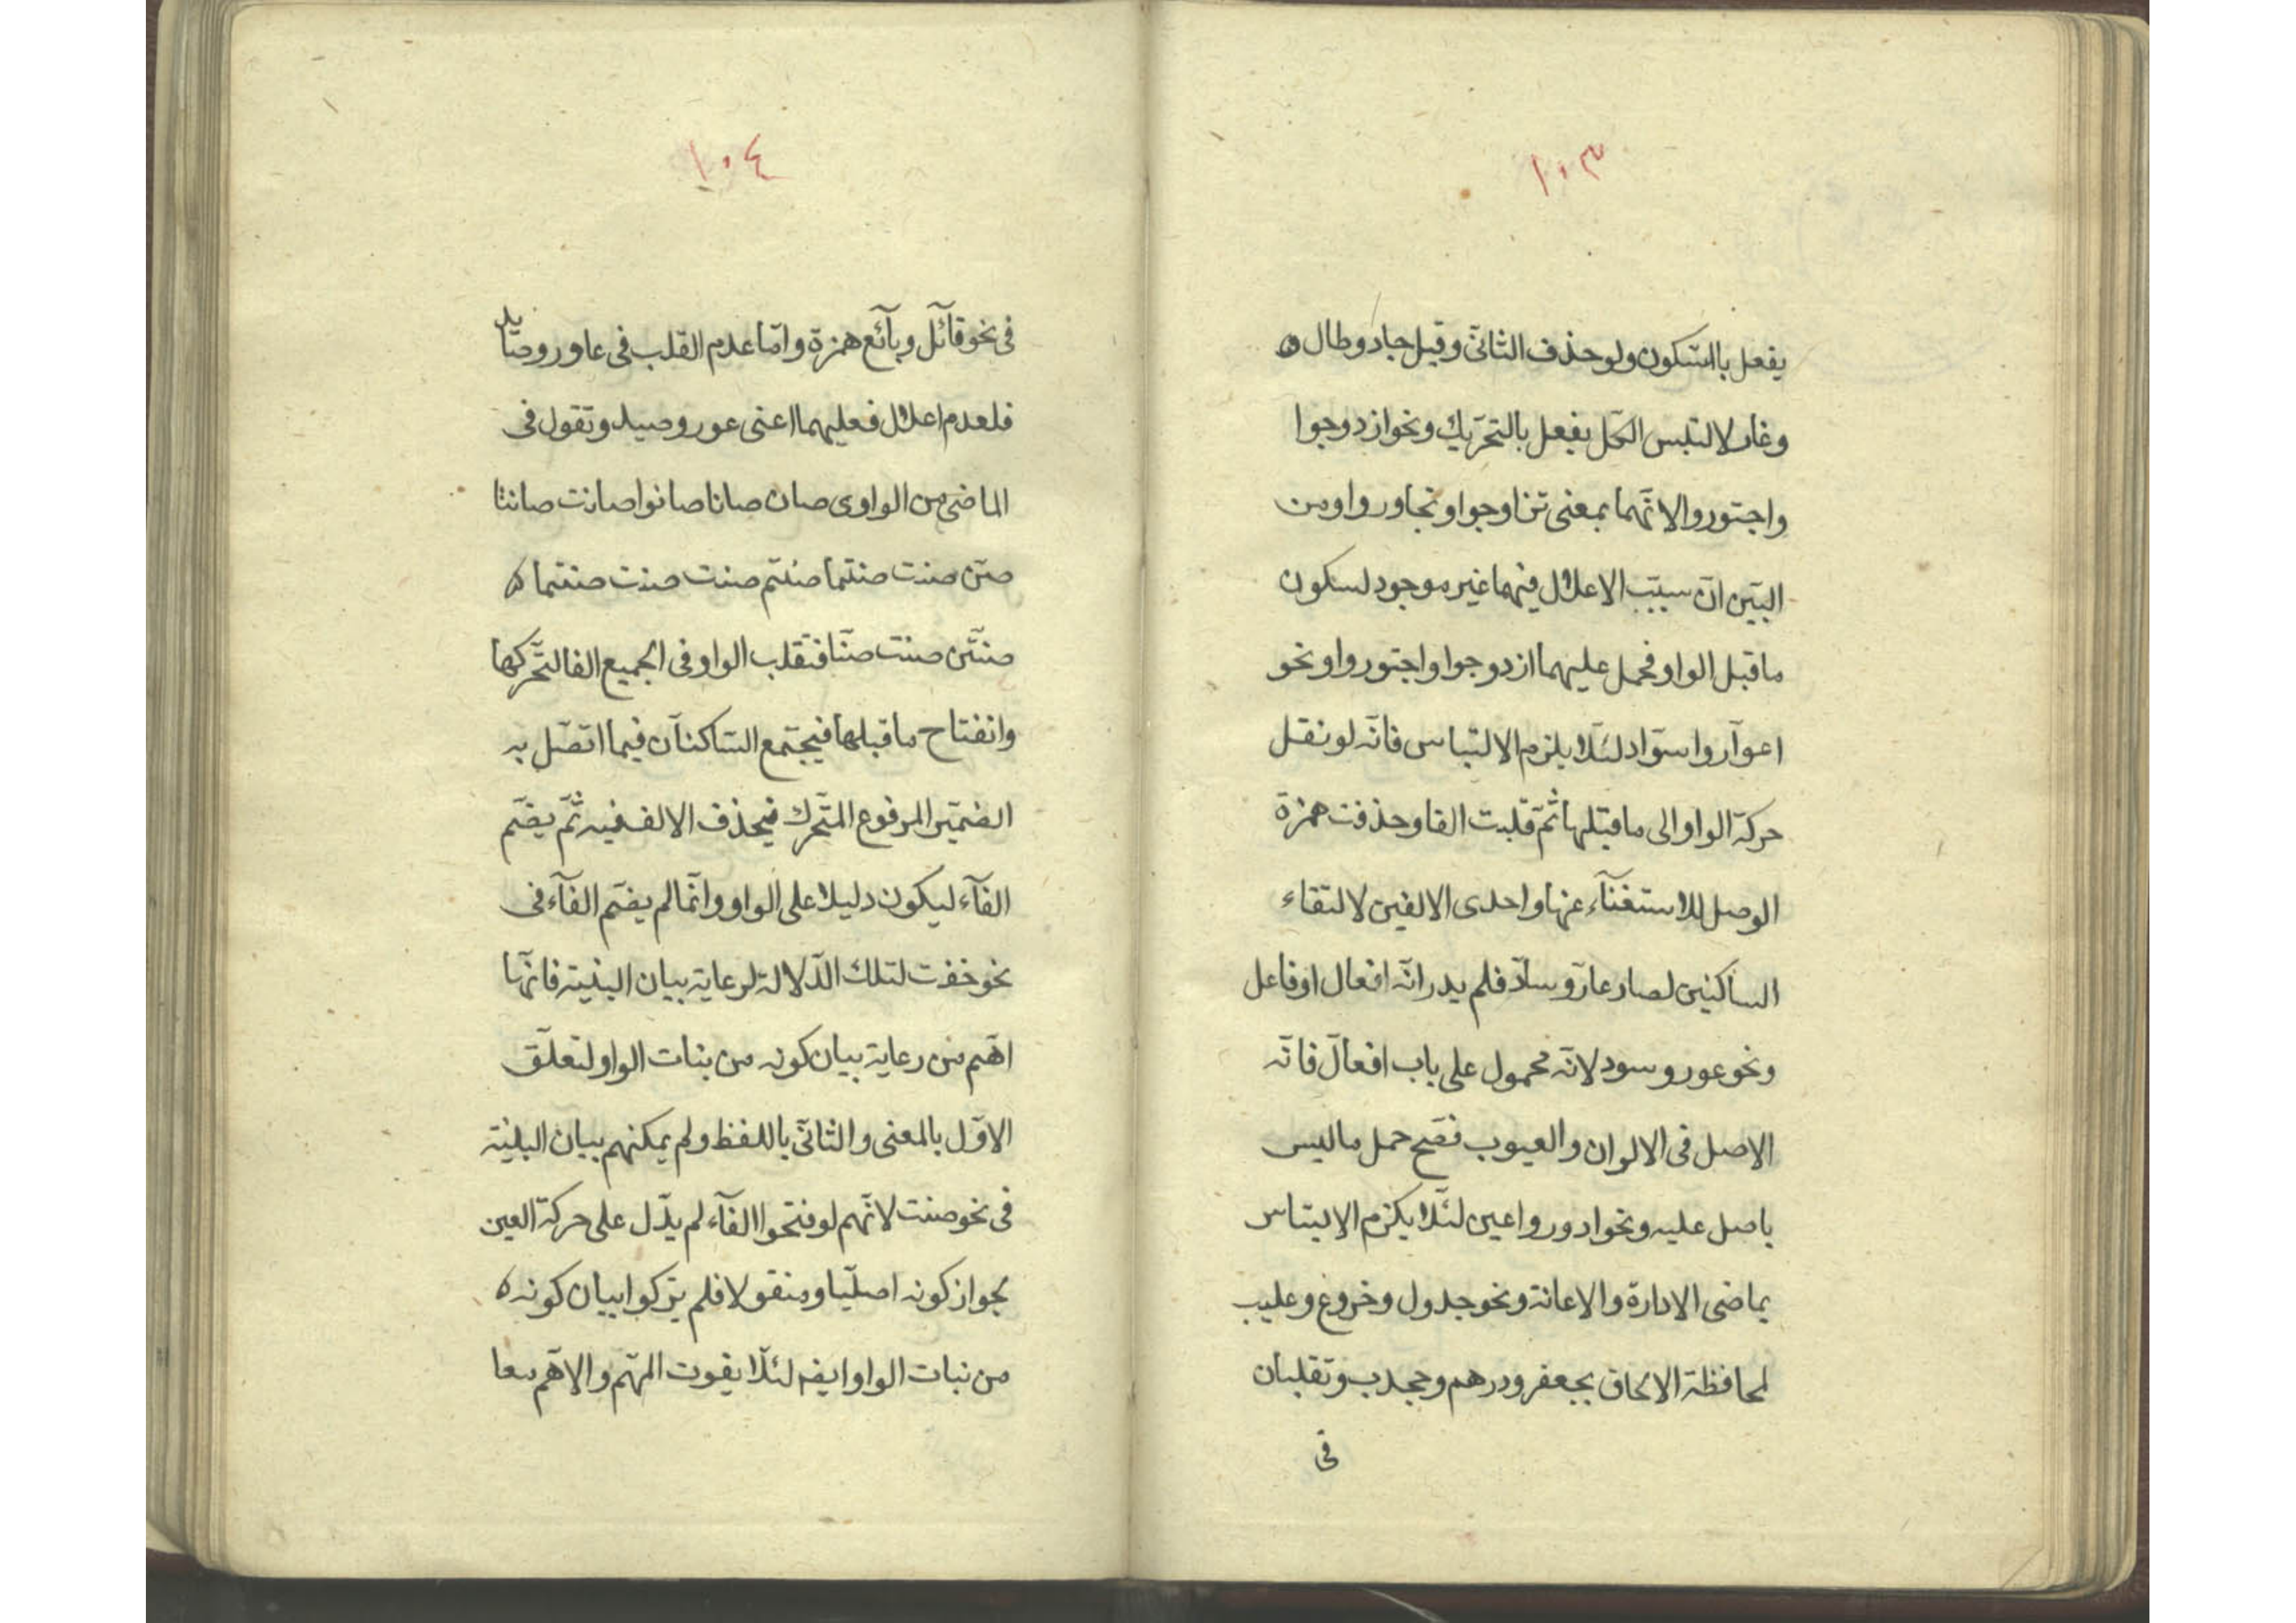 ١٠٣
يفعل بالسّكون ولو حذف الثانىّ وقيل جاد وطال
وغار لالتبس الكل بفعل بالتحرّيك ونحو ازدوجوا
واجتوروا لانّهما بمعنى تزاوجوا وتجاوروا ومن
البيّن انّ سبّب الاعلال فيهما غير موجود لسكون
ما قبل الواو فحمل عليهما ازدوجوا واجتوروا ونحو
اعوآر واسوّاد لئلّا يلزم الالتباس فانّه لو نقل
حركة الواو الى ما قبلها ثمّ قلبت الفا وحذفت همزة
الوصل للاستغنآء عنها واحدى الالفين لالتقاء
الساكنين لصار عارّ وسادّ فلم يدر انّه افعال او فاعل
ونحو عور وسود لانّه محمول على باب افعالّ فانّه
الاصل فى الالوان والعيوب فصّح حمل ما ليس
باصل عليه ونحو ادور واعين لئلّا يلزم الالتباس
بماضى الادارة والاعانة ونحو جدول وخروع وعليب
لمحافظة الالحاق بجعفر ودرهم وجحدب وتقلبان
فى
١٠٤
فى نحو قآئل وبآئع همزة وامّا عدم القلب فى عاور وصايد
فلعدم اعلال فعليهما اعنى عور وصيد وتقول فى
الماضى من الواوى صان صانا صانوا صانت صانتا
صنّ صنت صنتما صنتم صنت صنت صنتما
صنتّن صنت صنّا فتقلب الواو فى الجميع الفا لتحّركها
وانفتاح ما قبلها فيجتمع السّاكنآن فيما اتصّل به
الضميّر المرفوع المتحّرك فيحذف الالف فيه ثمّ يضّم
الفآء ليكون دليلا على الواو وانّما لم يضّم الفآء فى
نحو خفت لتلك الدّلالة لرعاية بيان البنية فانّها
اهّم من رعاية بيان كونه من بنات الواو لتعلّق
الاوّل بالمعنى والثانىّ باللفظ ولم يمكنهم بيان البنية
فى نحو صنت لانّهم لو فتحوا الفآء لم يدّل على حركة العين
لجواز كونه اصليّا ومنقولا فلم يتركوا بيان كونه
من نبات الواو ايضه لئلّا يفوت المهّم والاهّم معا